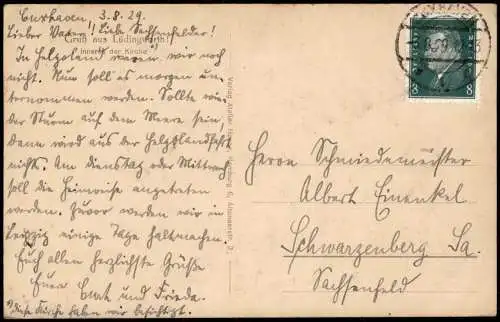 Cuxhaven, 3.8.29.
Lieber Vater! Liebe Sachsenfelder!
Gruß aus Lüdingworth!
Inneres der Kirche
In Helgoland waren wir noch
nicht. Nun soll es morgen un-
ternommen werden. Sollte wie-
der Sturm auf dem Meere sein,
dann wird aus der Helgolandfahrt
nichts. Am Dienstag oder Mittwoch
soll die Heimreise angetreten
werden. Zuvor werden wir in
Leipzig einige Tage haltmachen.
Euch allen herzlichste Grüße
Eure Curt und Frieda.
*) diese Kirche haben wir besichtigt.
Verlag Atelier Hamburg 6,
Herrn Schmiedemeister
Albert Einenkel
Schwarzenberg Sa.
Sachsenfeld
8 8